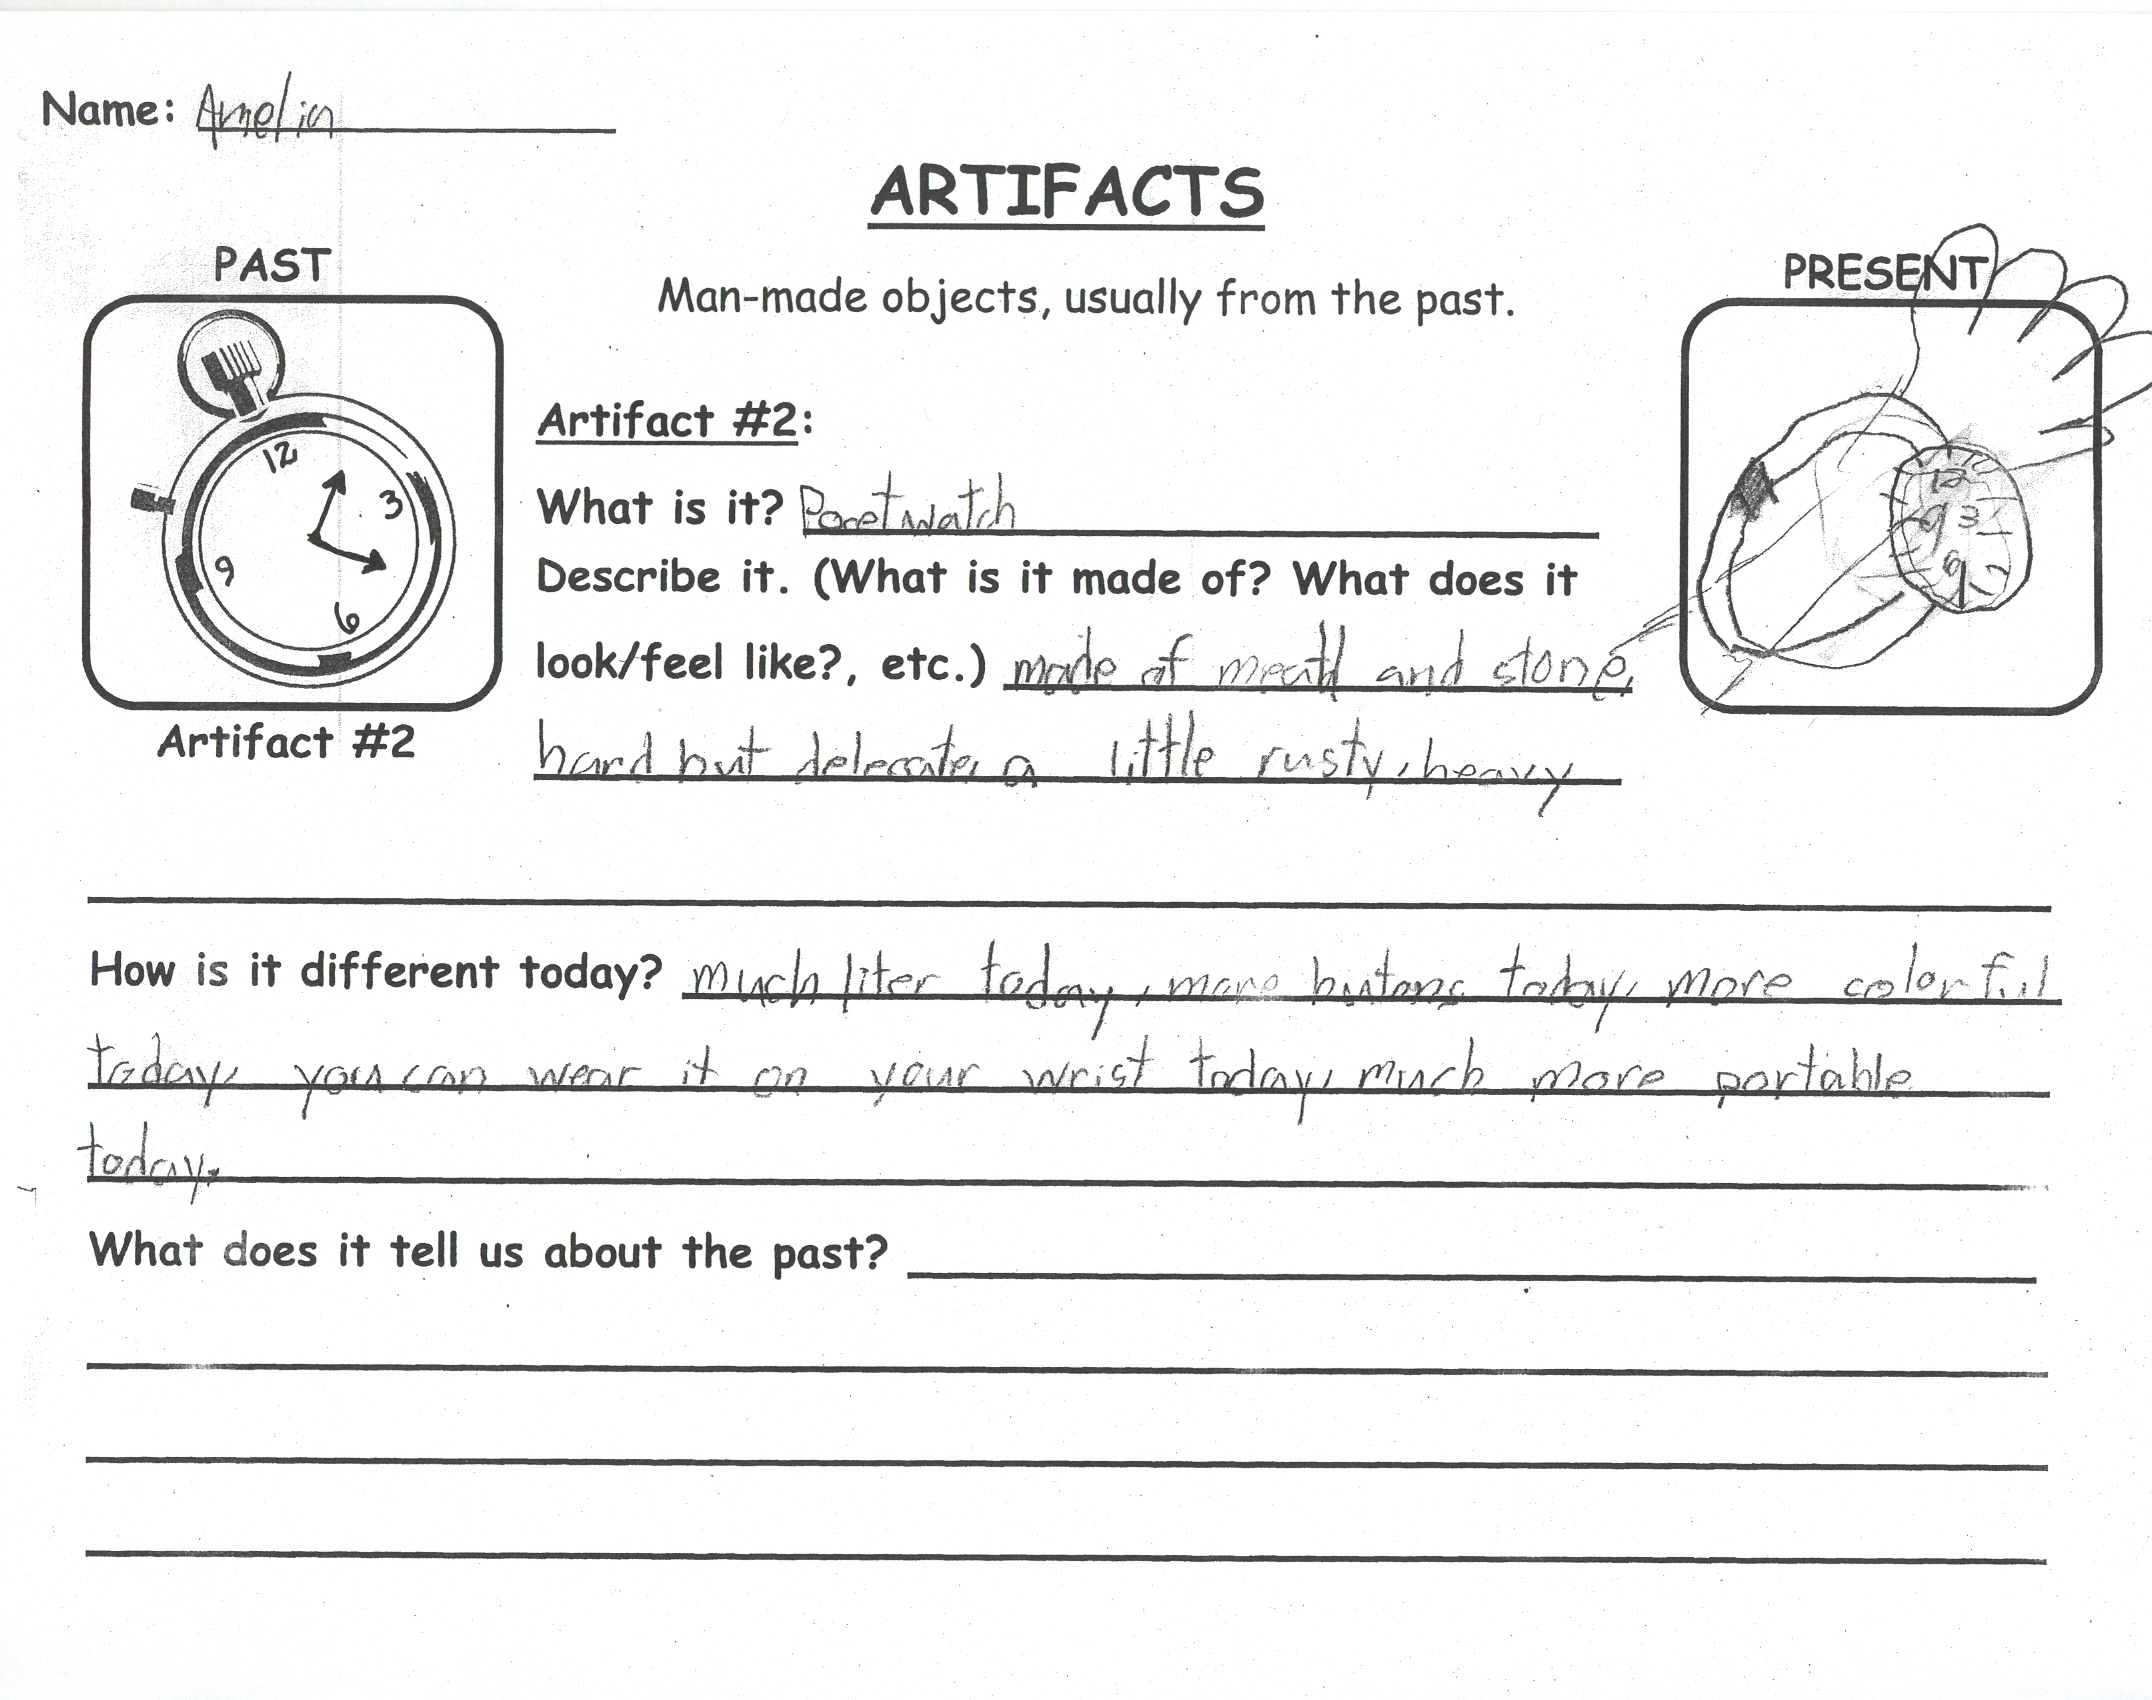 Name: Amelia
ARTIFACTS
PAST
PRESENT
Man-made objects, usually from the past.
12
3
9
6
12
9 3
6
Artifact #2:
What is it? Pocet watch
Describe it. (What is it made of? What does it
look/feel like?, etc.) made of and stone,
Artifact #2
hard but a little rusty, heavy
How is it different today? much liter today, more butons today, more colorful
today, you can wear it on your wrist today, much more portable
today.
What does it tell us about the past?